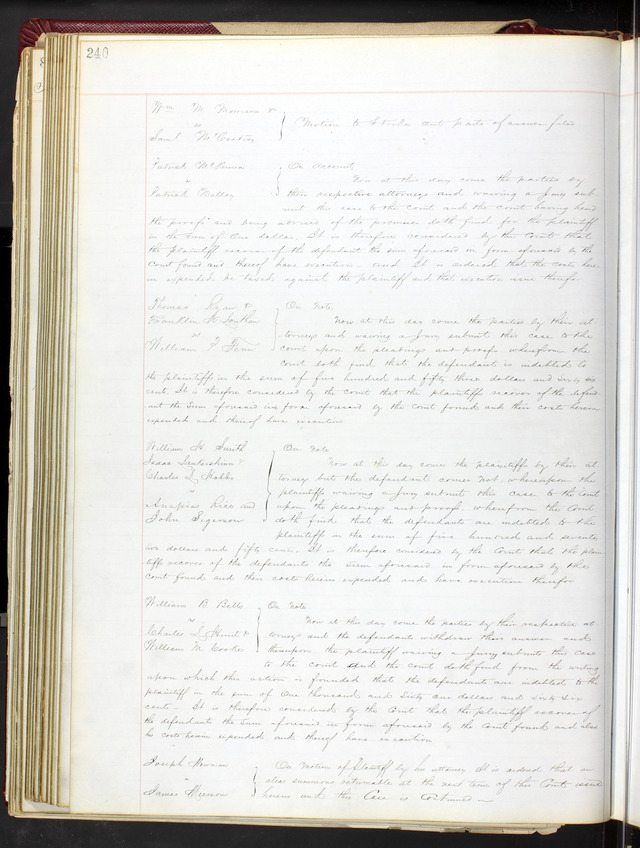 240
Wm M Morrison &
vs
Saml McCartney
Motion to strike out parts of answer filed
Patrick McKenna
vs
Patrick Malloy
On account
Now at this day come the parties by
their respective attorneys and waiving a Jury sub
mit this case to the Court and the court having heard
the proofs and being advised of the premises doth find for the plaintiff
in the sum of One dollar. It is therefore considered by the Court that
the plaintiff recover of the defendant the sum aforesaid in form aforesaid by the
Court found and thereof have execution and It is ordered that the costs here
in expended be taxed against the plaintiff and that execution issue therefor
Thomas &
Franklin
vs
William T
On Note
Now at this day come the parties by their at
torneys and waiving a Jury submit this case to the
court upon the pleadings and proofs wherefrom the
Court doth find that the defendant is indebted to
the plaintiffs in the sum of five hundred and fifty three dollars and sixty six
cents. It is therefore considered by the court that the plaintiffs recover of the defend
ant the Sum aforesaid in form aforesaid by the court found and their costs herein
expended and thereof have execution
William H. Smith
Isaac &
Charles L Hobbs
vs
Rice and
John Sigerson
On Note
Now at this day comes the plaintiffs by their at
torney but the defendant comes not. whereupon the
plaintiffs waiving a Jury submits this case to the Court
upon the pleadings and proofs wherefrom the Court
doth find that the defendants are indebted to the
plaintiffs in the sum of five hundred and seventy
two dollars and fifty cents. It is therefore considered by the Court that the plain
tiffs recover of the defendants the Sum aforesaid in form aforesaid by the
court found and their costs herein expended and have execution therefor
William B. Betts
vs
Charles L Hunt &
William M. Cooke
On Note
Now at this day come the parties by their respective at
torneys and the defendants withdraw their answer and
thereupon the plaintiff waiving a Jury submits this case
to the court and the court doth find from the writing
upon which this action is founded that the defendants are indebted to the
plaintiff in the sum of One thousand and Sixty one dollars and sixty six
cents. It is therefore considered by the Court that the plaintiff recover of
the defendants the Sum aforesaid in form aforesaid by the Court found and also
his costs herein expended and thereof have execution
Joseph
vs
James
On Motion of plaintiff by his attorney It is ordered that an
alias summons returnable at the next term of this Court issue
herein and this Case is Continued